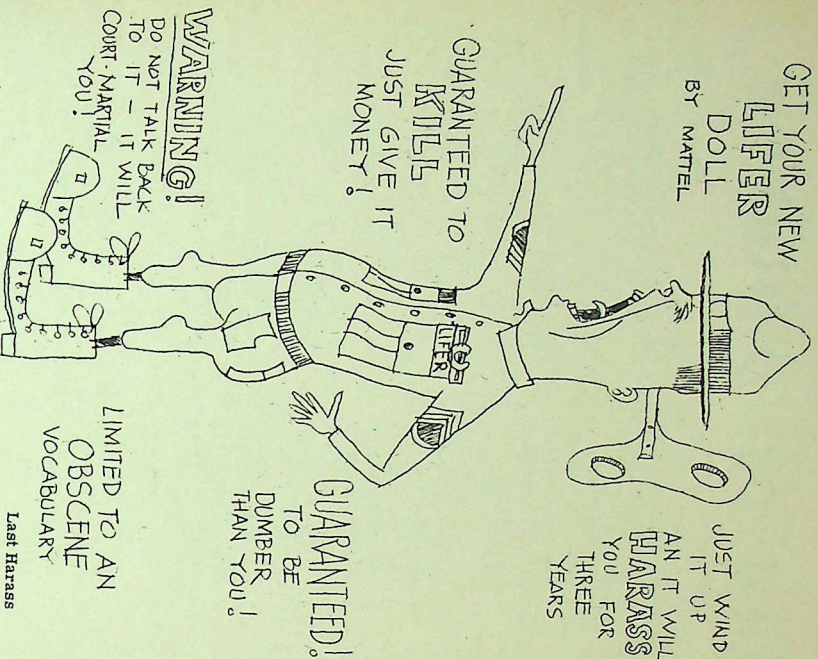 GET YOUR NEW
LIFER
DOLL
BY MATTEL
JUST WIND
IT UP
AN IT WILL
HARASS
YOU FOR
THREE
YEARS
GUARANTEED TO
KILL
JUST GIVE IT
MONEY!
LIFER
GUARANTEED!
TO BE
DUMBER
THAN YOU!
WARNING!
DO NOT TALK BACK
TO IT - IT WILL
COURT-MARTIAL
YOU!
LIMITED TO AN
OBSCENE
VOCABULARY
Last Harass